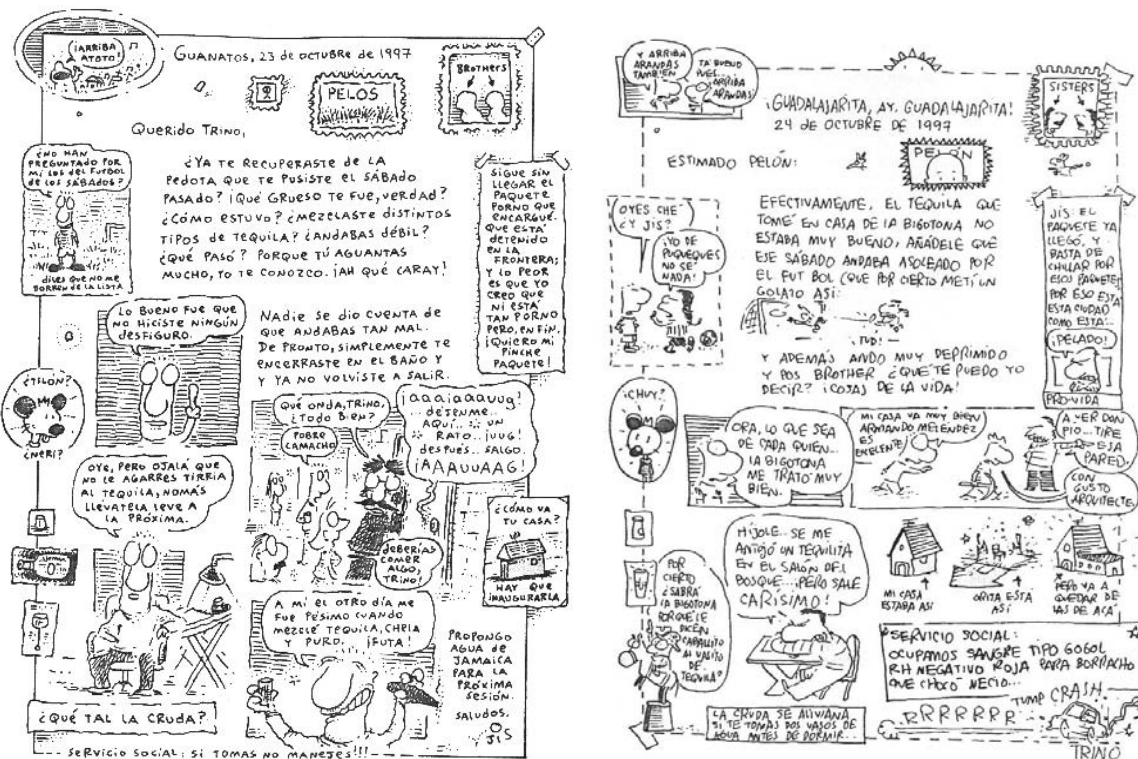 ¡ARRIBA
ATOTO!
GUANATOS, 23 de OCTUBRE de 1997
PELOS
BROTHERS
QUERIDO TRINO,
¿NO HAN
PREGUNTADO POR
MI LOS DEL FUTBOL
DE LOS SÁBADOS?
DILES QUE NO ME
BORREN DE LA LISTA
¿YA TE RECUPERASTE DE LA
PEDOTA QUE TE PUSISTE EL SÁBADO
PASADO? ¡QUÉ GRUESO TE FUE, VERDAD?
¿CÓMO ESTUVO? ¿MEZCLASTE DISTINTOS
TIPOS DE TEQUILA? ¿ANDABAS DÉBIL?
¿QUÉ PASÓ? PORQUE TÚ AGUANTAS
MUCHO, YO TE CONOZCO. ¡AH QUÉ CARAY!
SIGUE SIN
LLEGAR EL
PAQUETE
PORNO QUE
ENCARGUÉ.
QUE ESTÁ
DETENIDO
EN LA
FRONTERA;
Y LO PEOR
ES QUE YO
CREO QUE
NI ESTÁ
TAN PORNO
PERO, EN FIN.
¡QUIERO MI
PINCHE
PAQUETE!
LO BUENO FUE QUE
NO HICISTE NINGÚN
DESFIGURO.
NADIE SE DIO CUENTA DE
QUE ANDABAS TAN MAL.
DE PRONTO, SIMPLEMENTE TE
ENCERRASTE EN EL BAÑO Y
Y YA NO VOLVISTE A SALIR.
¿TLÓN?
¿NERI?
QUÉ ONDA, TRINO,
¿TODO BIEN?
POBRE
CAMACHO
¡aaaiaaauug!
DÉJENME..
AQUÍ... UN
RATO.. ¡UUG!
DESPUÉS.. SALGO.
¡AAAUUAAG!
DEBERÍAS
COMER
ALGO,
TRINO!
OYE, PERO OJALÁ QUE
NO LE AGARRES TIRRIA
AL TEQUILA, NOMÁS
LLÉVATELA LEVE A
LA PRÓXIMA.
¿CÓMO VA
TU CASA?
HAY QUE
INAUGURARLA
A MÍ EL OTRO DÍA ME
FUE PÉSIMO CUANDO
MEZCLÉ TEQUILA, CHELA
Y PURO. ¡FUTA!
PROPONGO
AGUA DE
JAMAICA
PARA LA
PRÓXIMA
SESIÓN.
SALUDOS.
JIS
¿QUÉ TAL LA CRUDA?
SERVICIO SOCIAL: SI TOMAS NO MANEJES!!!
Y ARRIBA
ARANDAS
TAMBIÉN
TA BUENO
PUES...
ARRIBA
ARANDAS
¡GUADALAJARITA, AY, GUADALAJARITA!
24 de OCTUBRE DE 1997
SISTERS
ESTIMADO PELÓN:
PELÓN
OYES CHE
¿Y JIS?
¡YO DE
PUQUEQUES
NO SÉ
NADA!
EFECTIVAMENTE, EL TEQUILA QUE
TOMÉ EN CASA DE LA BIGOTONA NO
ESTABA MUY BUENO, AÑÁDELE QUE
ESE SÁBADO ANDABA ASOLEADO POR
EL FUT BOL (QUE POR CIERTO METÍ UN
GOLAZO ASÍ:
¡TUD!
Y ADEMÁS ANDO MUY DEPRIMIDO
Y POS BROTHER ¿QUÉ TE PUEDO YO
DECIR? ¡COSAS DE LA VIDA!
JIS: EL
PAQUETE YA
LLEGÓ, Y
BASTA DE
CHILLAR POR
ESOS PAQUETES
POR ESO ESTÁ
ESTA CIUDAD
COMO ESTÁ..
¡PELADO!
PRO-VIDA
¿CHUY?
ORA, LO QUE SEA
DE CADA QUIEN..
LA BIGOTONA
ME TRATÓ MUY
BIEN.
MI CASA VA MUY BIEN
ARMANDO MELÉNDEZ
ES
EXELENTE
A VER DON
PIO... TIRE
ESA
PARED.
CON
GUSTO
ARQUITECTE
HÍJOLE.. SE ME
ANTOJÓ UN TEQUILITA
EN EL SALÓN DEL
BOSQUE... ¡PERO SALE
CARÍSIMO!
MI CASA
ESTABA ASÍ
ORITA ESTÁ
ASÍ
PERO VA A
QUEDAR DE
LAS DE ACÁ
POR
CIERTO
¿SABRÁ
LA BIGOTONA
PORQUÉ LE
DICEN
CABALLITO
AL VASITO
DE
TEQUILA?
SERVICIO SOCIAL:
OCUPAMOS SANGRE TIPO GOGOL
RH NEGATIVO ROJA PARA BORRACHO
QUE CHOCÓ NECIO...
LA CRUDA SE ALIVIANA
SI TE TOMAS DOS VASOS DE
AGUA ANTES DE DORMIR..
RRRRRRR
TUMP CRASH
TRINO